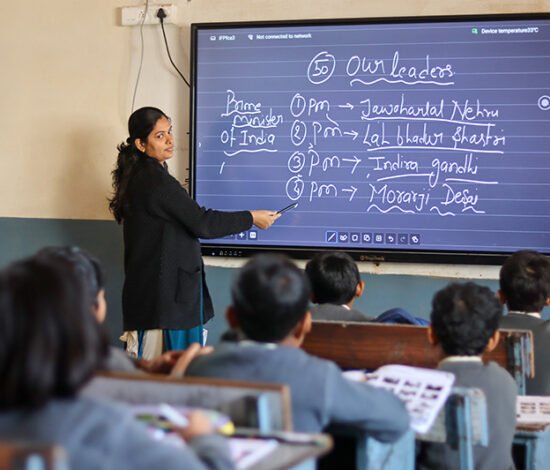 IFPfca3 Not connected to network Device temperature33°C
50 Our leaders
Prime Minister Of India
① Pm → Jawaharlal Nehru
② Pm → Lal bhadur Shastri
③ Pm → Indira gandhi
④ Pm → Morarji Desai